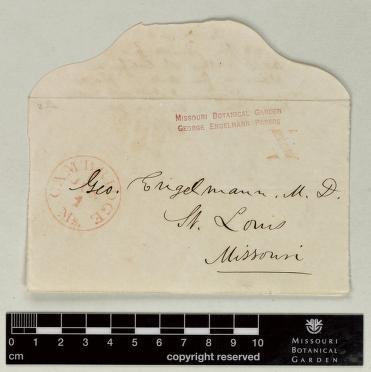 MISSOURI BOTANICAL GARDEN
GEORGE ENGELMANN PAPERS
CAMBRIDGE
Geo. Engelmann. M. D.
St. Louis
Missouri
0 1 2 3 4 5 6 7 8 9 10
cm
copyright reserved
MISSOURI
BOTANICAL
GARDEN